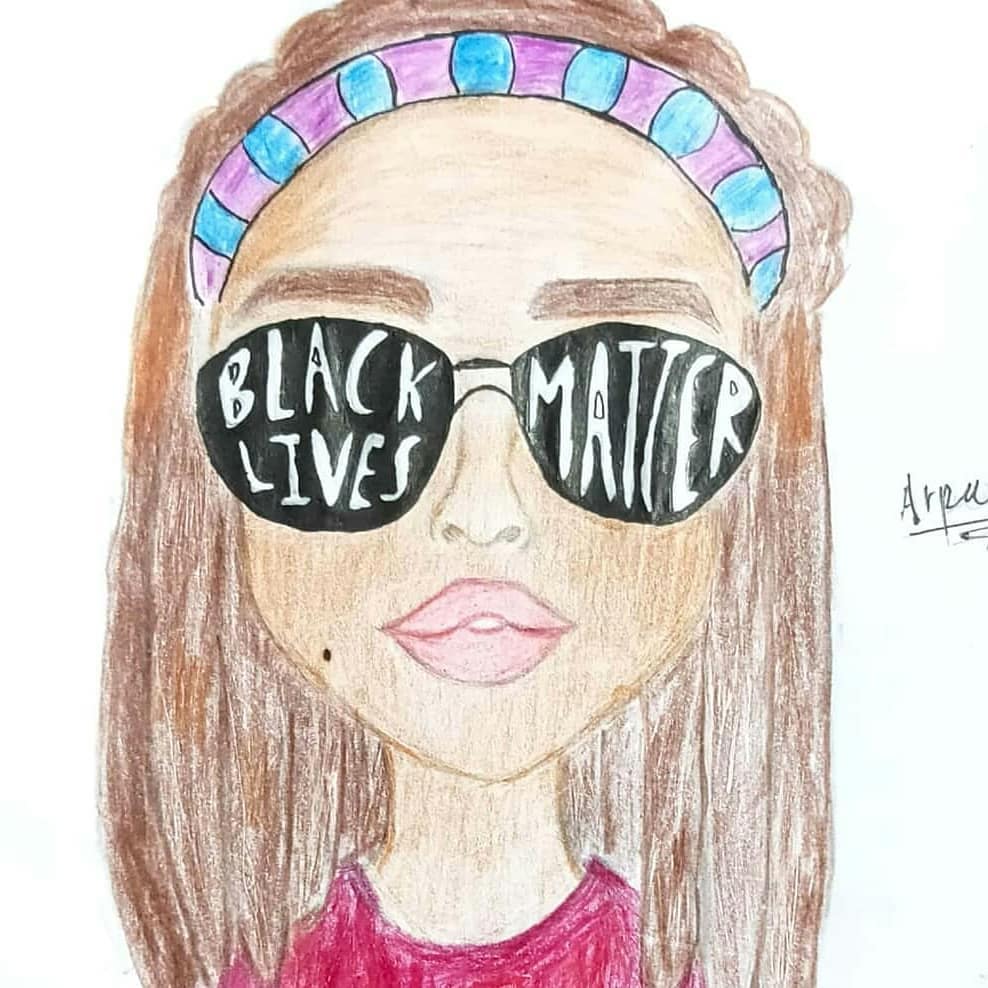 BLACK
LIVES
MATTER